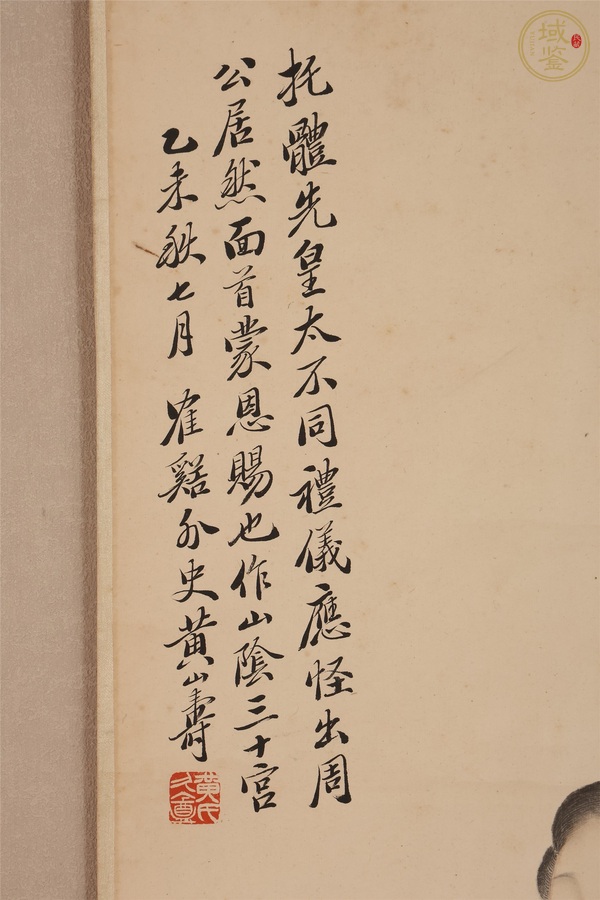 托體先皇太不同禮儀應怪出周
公居然面首蒙恩賜也作山陰三十宮
乙未秋七月 崔谿外史黃山壽
黃氏
域鑒